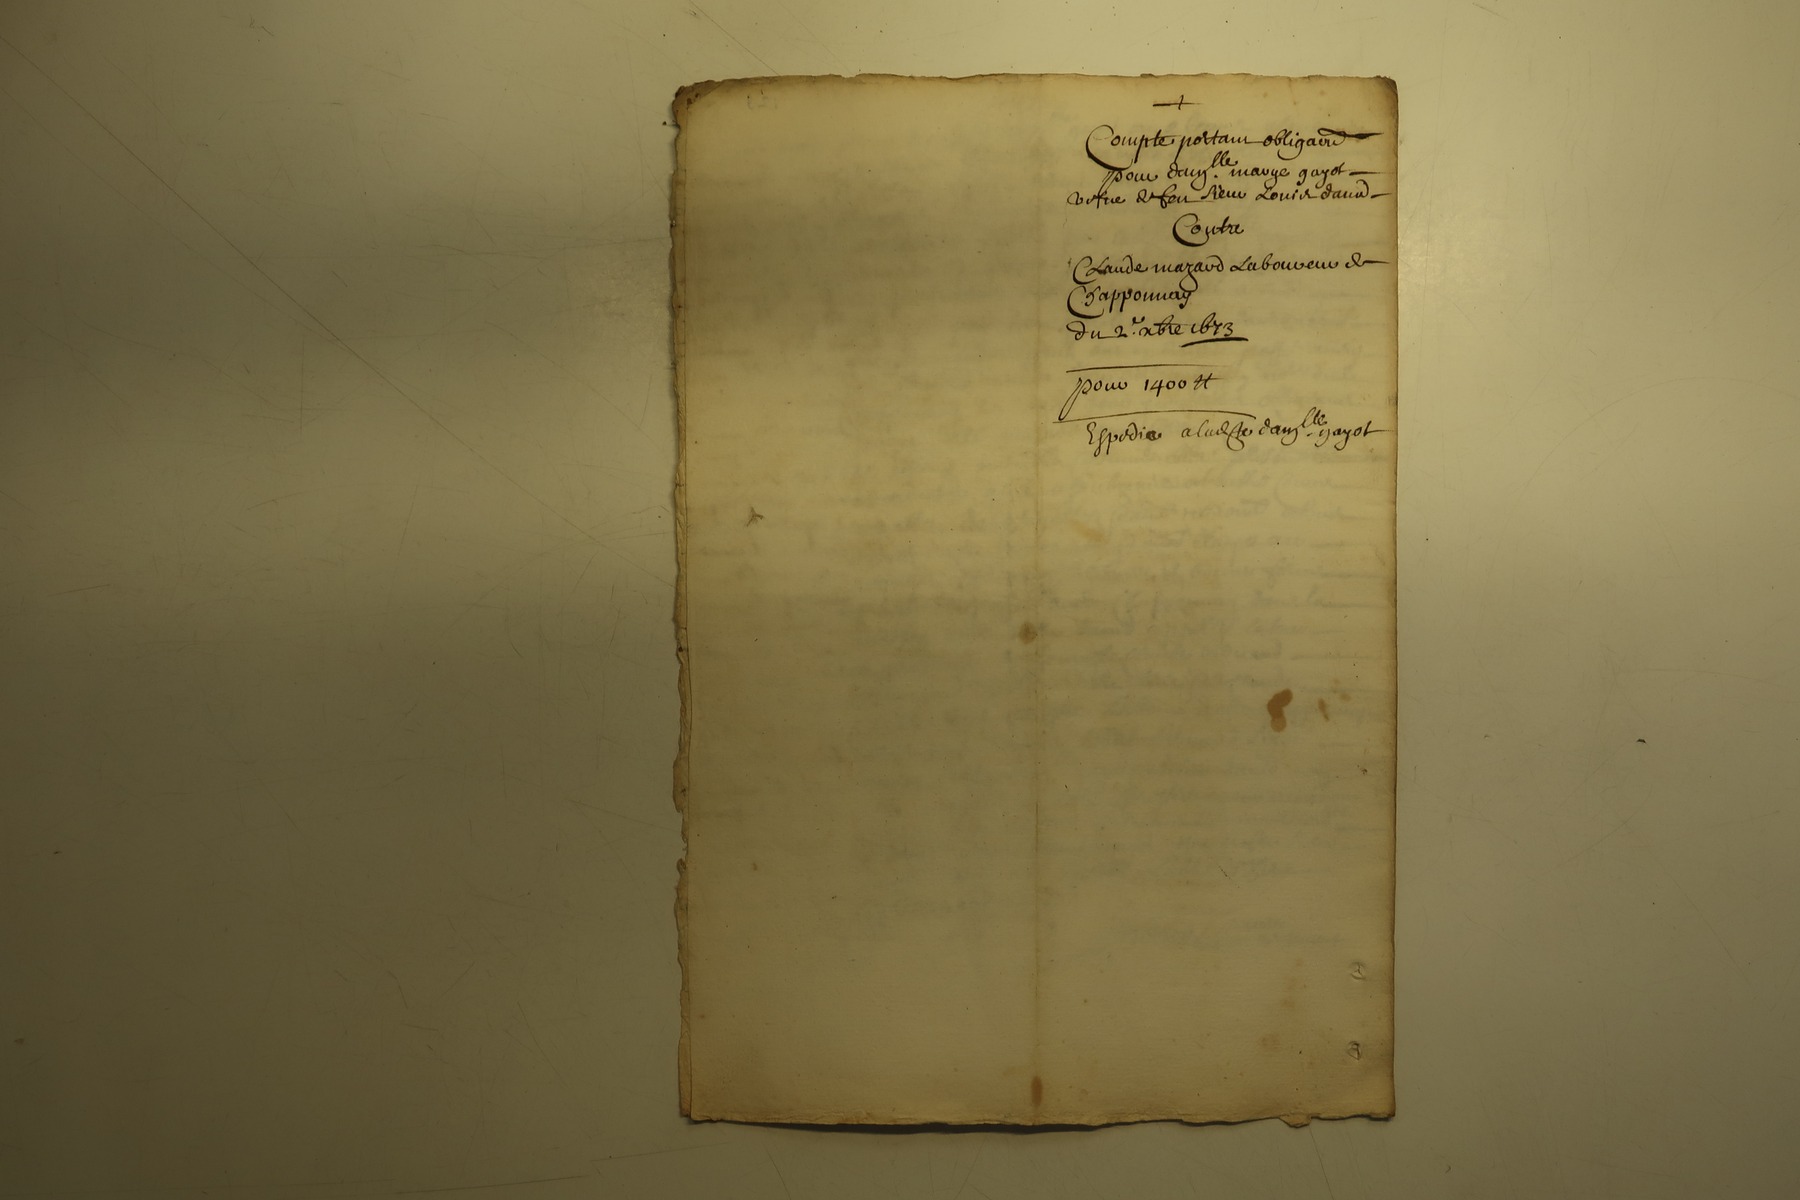 Compte portant obligaõn
pour damlle. marye gayot
vefve de feu sieur Louis
Contre
Claude mazard Laboureur de
Chapponnay
du 2e. xbre 1673
pour 1400 ₶
Espédié a ladte damlle. gayot